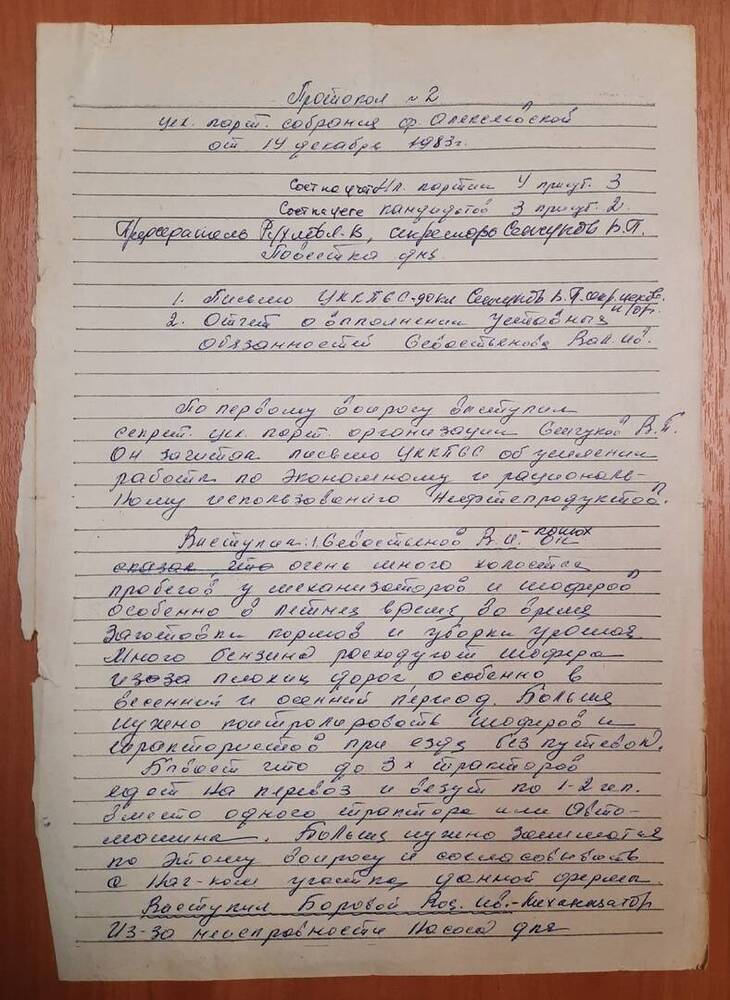 Протокол № 2
цех. парт. собрания ф. Алексеевской
от 14 декабря 1983г.
Сост на учёте чл. партии 4 присут. 3
Сост на учете кандидатов 3 присут. 2.
Председатель В, секретарь Семчуков В.П.
Повестка дня
1. Письмо ЦК КПСС - докл Семчуков В.П. секр. цехов. п/орг.
2. Отчет о выполнении уставных
обязанностей Севостьянова Вал. Ив.
По первому вопросу выступил
секрет. цех. парт. организации Семчуков В.П.
Он зачитал письмо ЦК КПСС об усилении
работы по экономному и рациональ-
ному использованию нефтепродуктов.
Выступил: 1. Севостьянов В.И. - Он
сказал, что очень много холостых
пробегов у механизаторов и шоферов
особенно в летнее время, во время
заготовки кормов и уборки урожая.
Много бензина расходуют шофера
из-за плохих дорог особенно в
весенний и осенний период. Больше
нужно контролировать шоферов и
трактористов при езде без путевок.
Бывает что до 3х тракторов
едет на перевоз и везут по 1-2 чел.
вместо одного трактора или авто-
машина. Больше нужно заниматся
по этому вопросу и согласовывать
с нач-ком участка данной фермы.
Выступил Боровой Ив. - Механизатор
Из-за неисправности насоса для